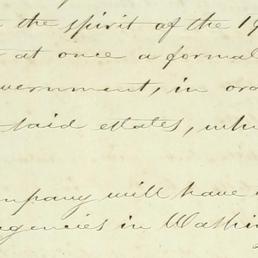 the spirit of the 19
at once a formal
vernment, in ord
said estates, whi
ompany will have
agencies in Washin